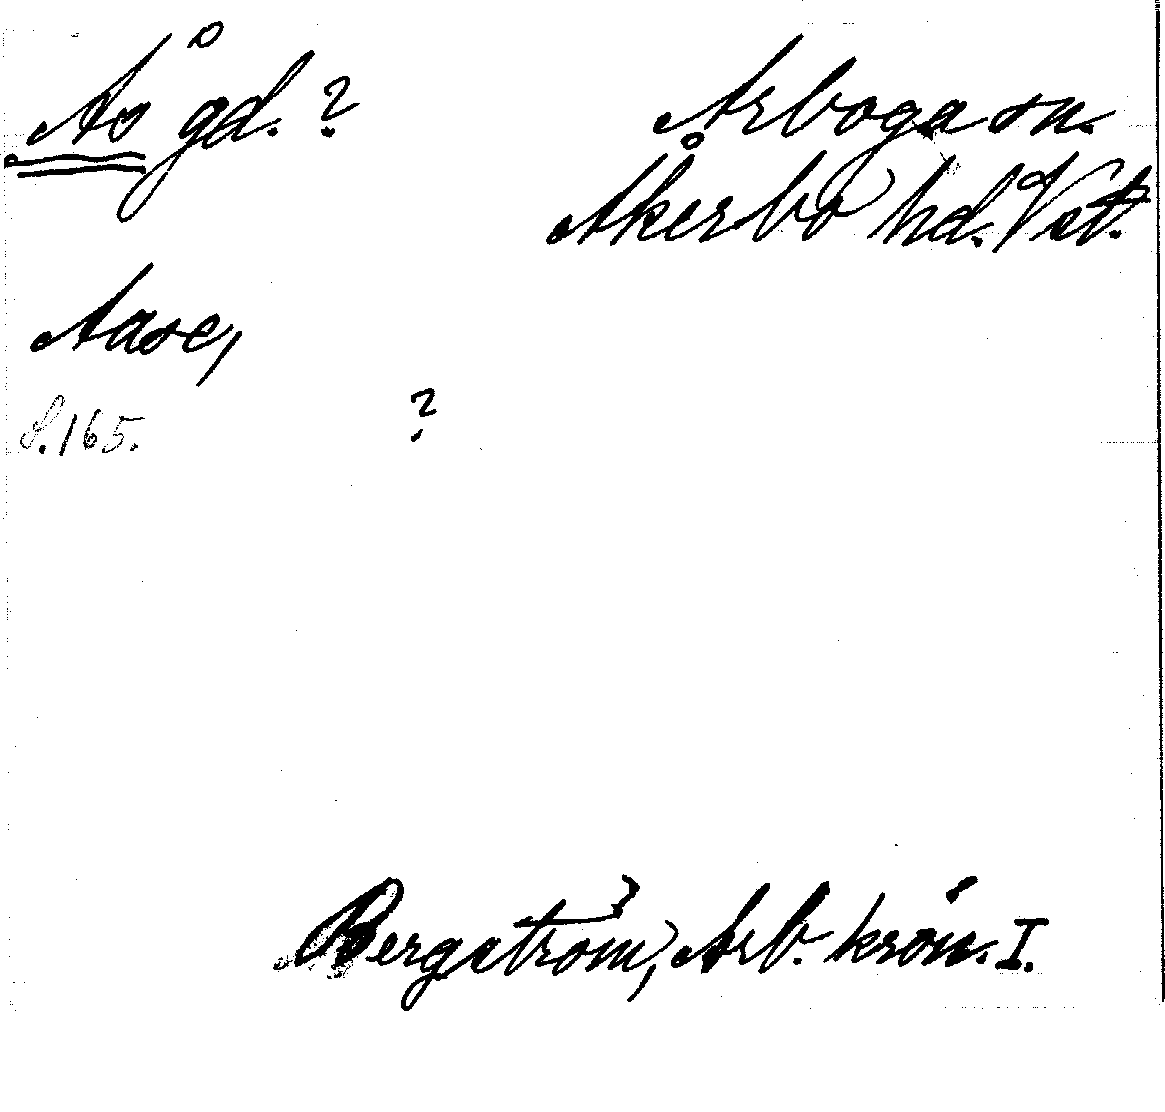 Ås gd. ?
Arboga sn.
Åkerbo hd. Vstl.
Aase,
S. 165.
?
Bergström, Arb. krön. I.